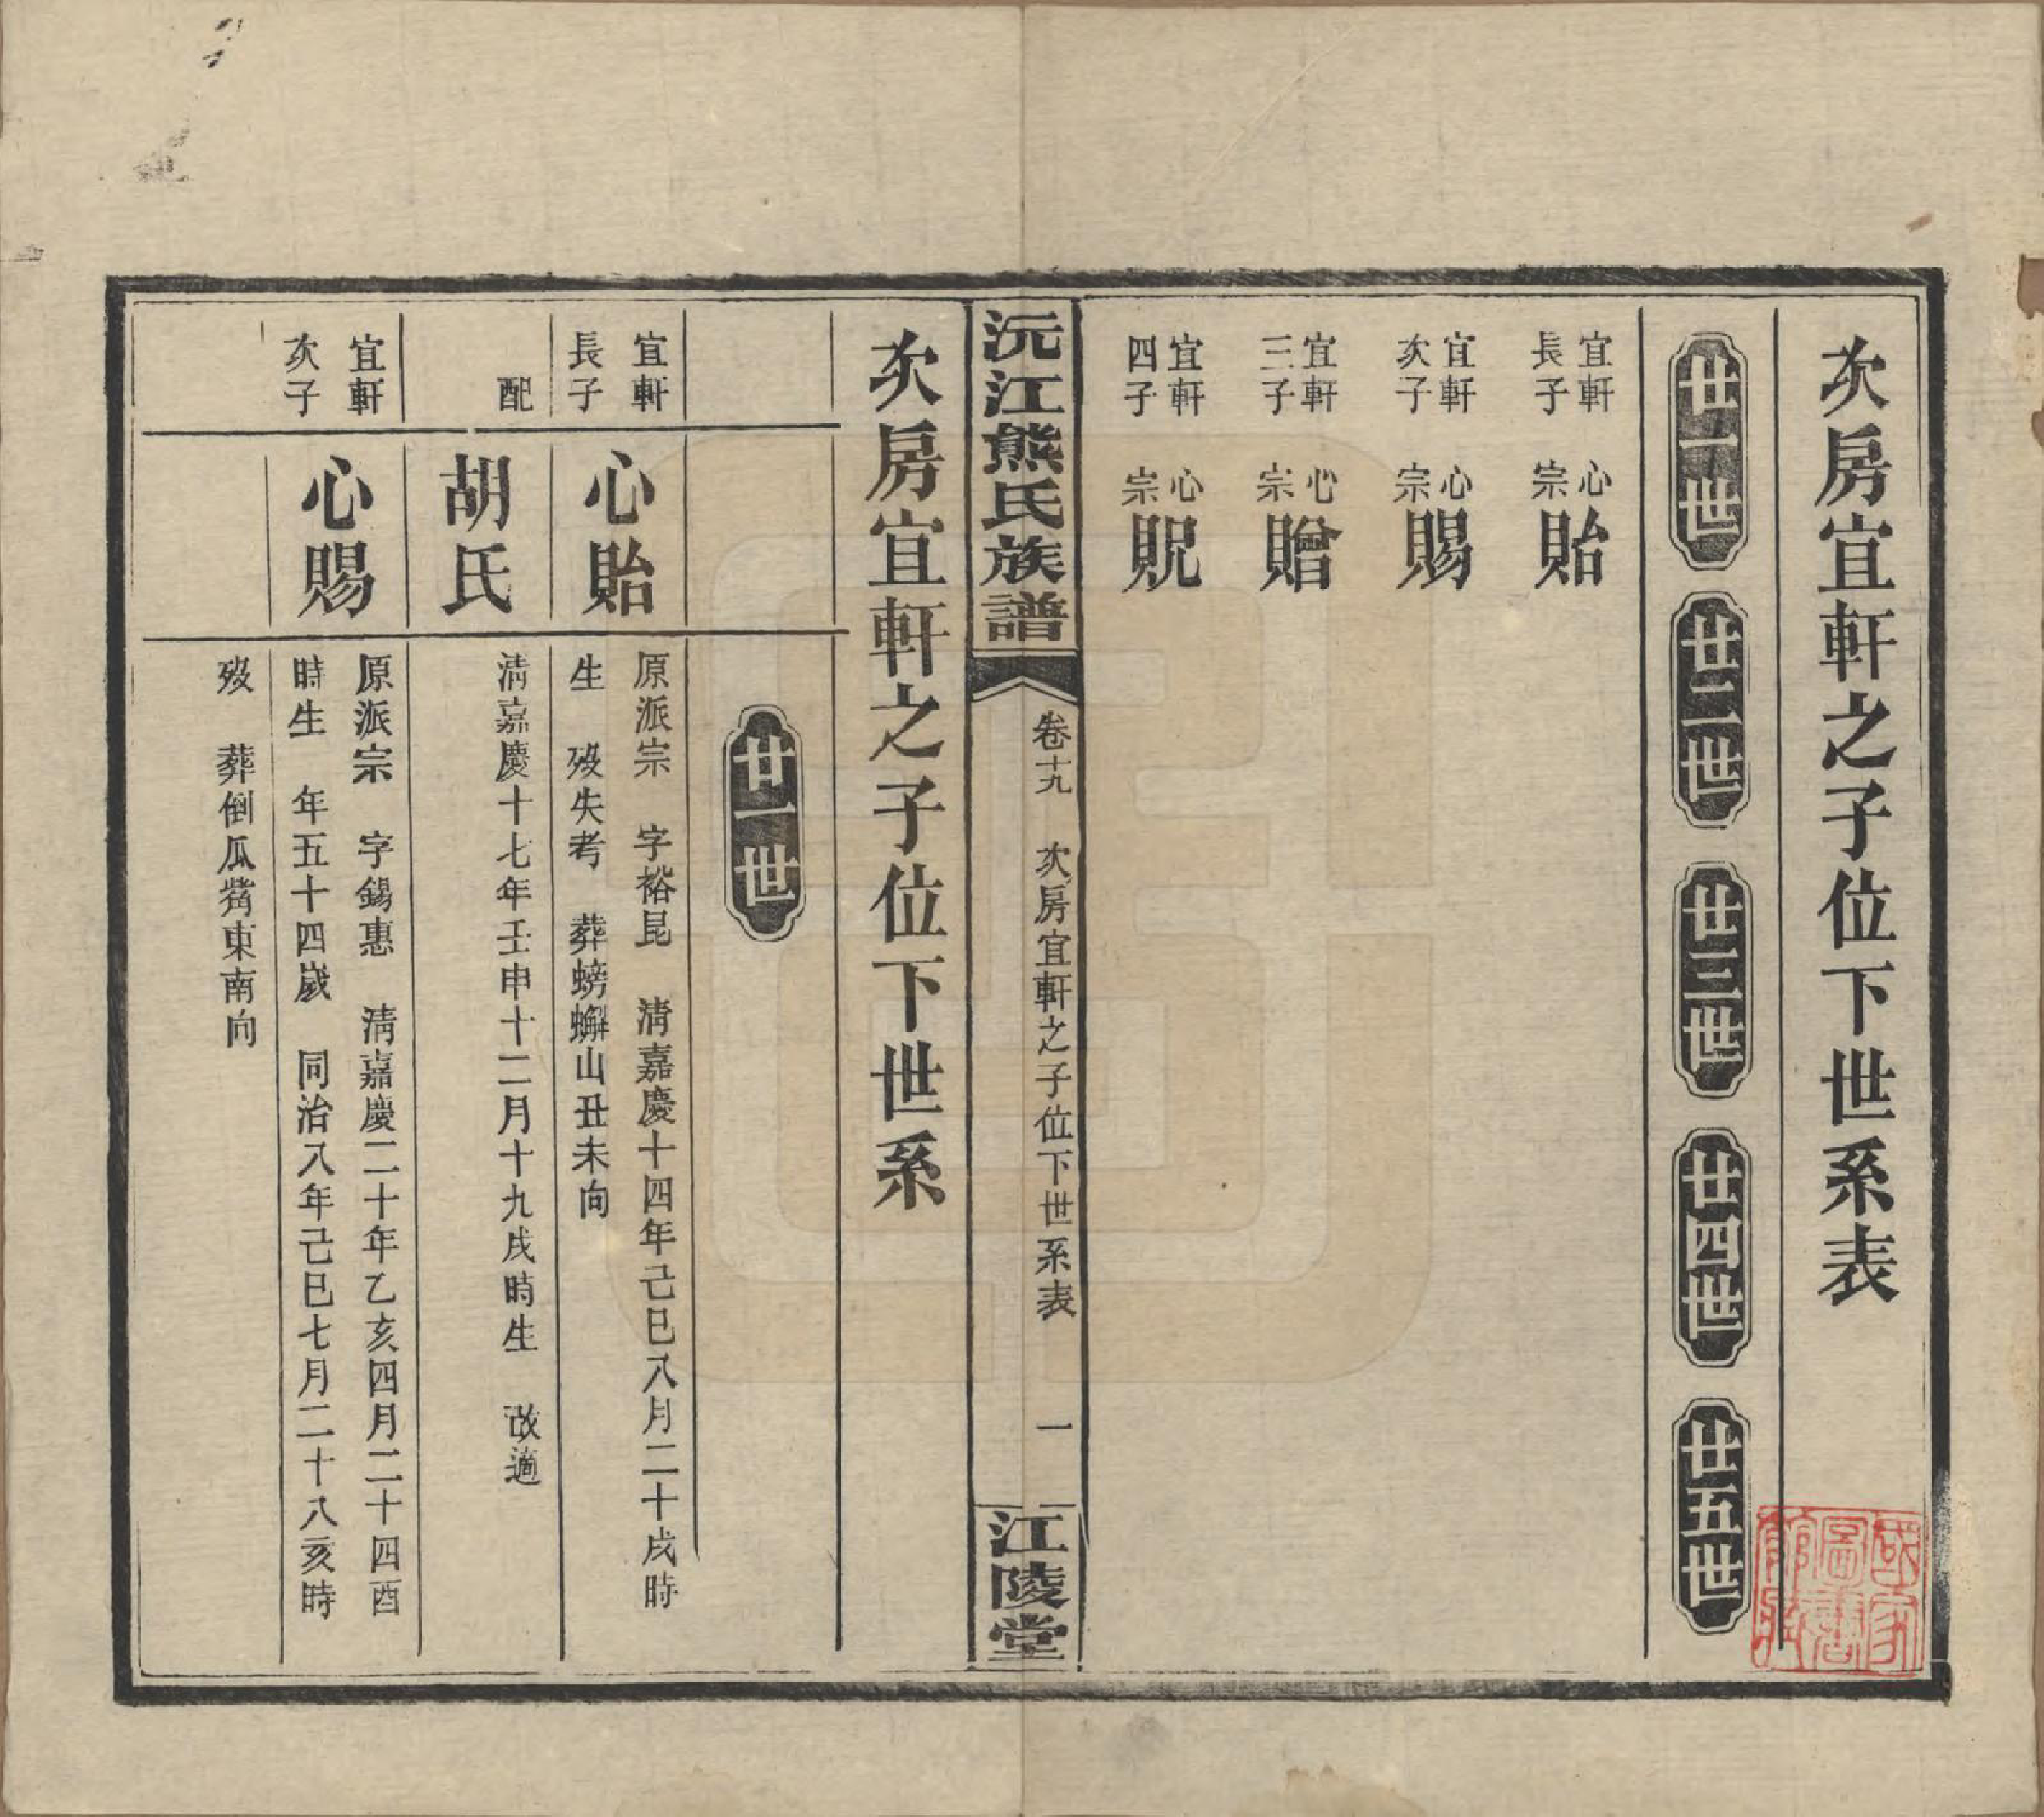 次房宜軒之子位下世系表
廿一世
廿二世
廿三世
廿四世
廿五世
宜軒長子 心宗貽
宜軒次子 心宗賜
宜軒三子 心宗贈
宜軒四子 心宗貺
沅江熊氏族譜
卷十九 次房宜軒之子位下世系表 一
江陵堂
次房宜軒之子位下世系
廿一世
宜軒
長子
心貽
原派宗 字裕昆 清嘉慶十四年己巳八月二十戌時
生 歿失考 葬螃蠏山丑未向
配
胡氏
清嘉慶十七年壬申十二月十九戌時生 改適
宜軒
次子
心賜
原派宗 字錫惠 清嘉慶二十年乙亥四月二十四酉
時生 年五十四歲 同治八年己巳七月二十八亥時
歿 葬倒瓜嵴東南向
國家圖書館藏